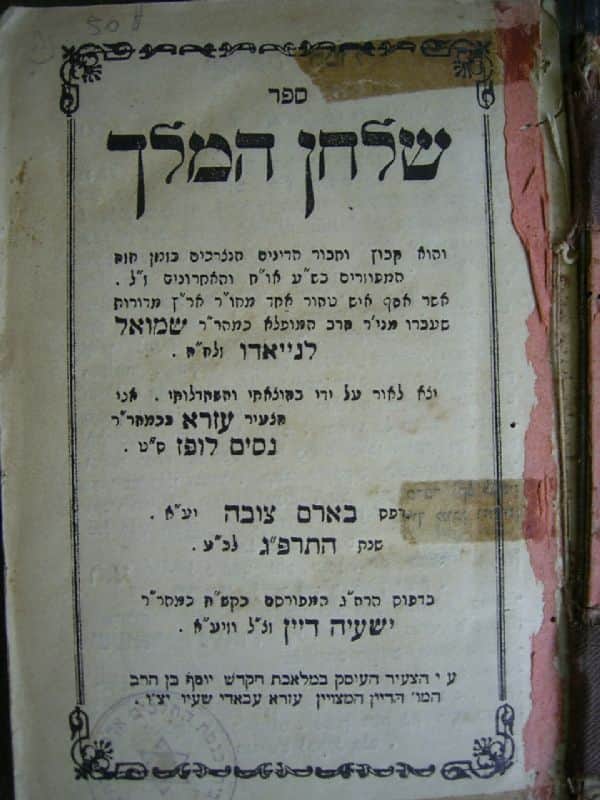 50
ספר
שלחן המלך
והוא קבוץ וחבור הדינים הנצרכים בזמן הזה
המפוזרים בש"ע או"ח והאחרונים ז"ל .
אשר אסף איש טהור אחד מחו"ר אר"ץ מדורות
שעברו מני'ר הרב המופלא כמהר"ר שמואל
לנייאדו זלה"ה .
יצא לאור על ידי בהוצאתי והשתדלותי . אני
הצעיר עזרא בכמהר"ר
נסים לופז ס"ט .
נדפס בארם צובה יע"א .
שנת התרפ"ג לב"ע .
בדפוס הרה"ג המפורסם בקש"ת כמהר"ר
ישעיה דיין זצ"ל וזיע"א .
ע י הצעיר העוסק במלאכת הקדש יוסף בן הרב
המו' הדיין המצויין עזרא עבאדי שעיו יצ"ו .